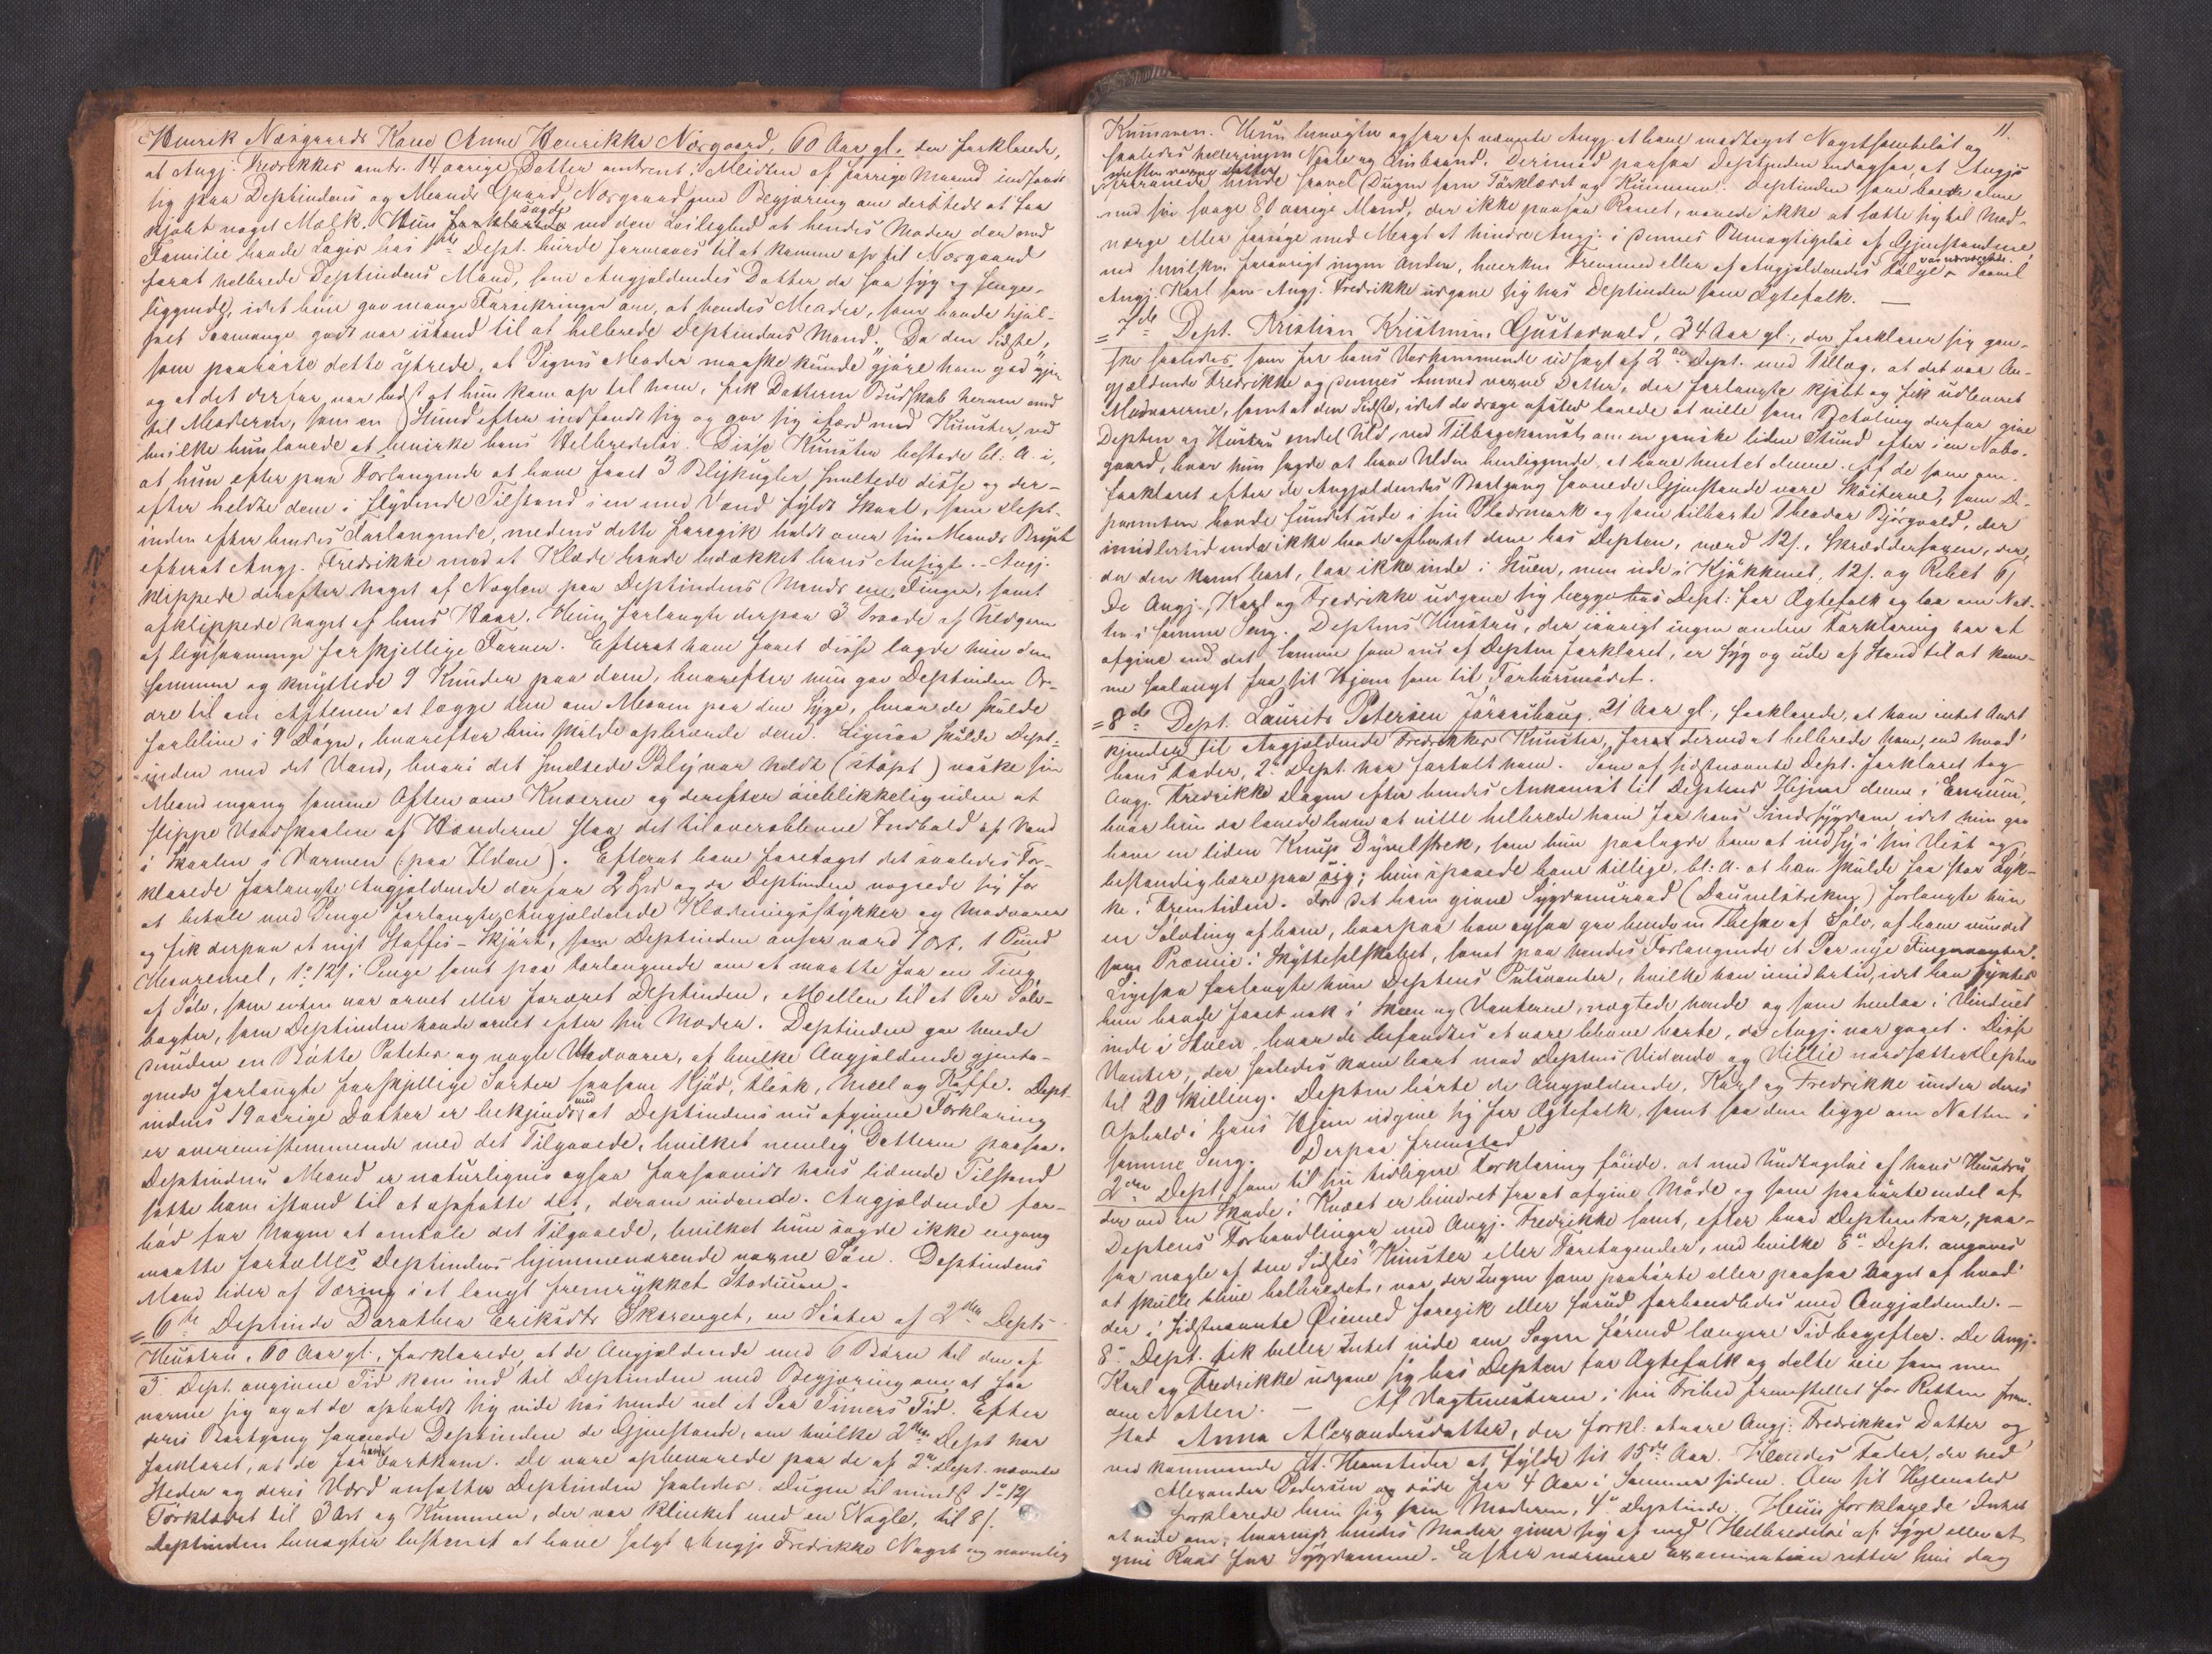 Henrik Næsgaards Kone Anne Henrikka Norgaard, 60 Aar gl. der forklarede,
at Angj. Fredrikkes omtr. 14 aarige Datter omtrent i Midten af forrige Maaned indfandt
sig paa Deptindens og Mands Gaard Norgaard med Begjæring om dersteds at faa
kjøbt noget Melk. Hun forklarede sagde ved den Leilighed at hendes Moder der med
Familie havde Logis hos Dept. burde formaaes til at komme op til Norgaard
forat helbrede Deptindens Mand, som Angjældendes Datter da saa syg og senge-
liggende, idet hun gav mange Forsikringer om, at hendes Moder, som havde hjul-
pet saamange godt var istand til at helbrede Deptindens Mand. Da den Sidste,
som paahørte dette ytrede, at Pigens Moder maaske kunde "gjøre ham god igjen
og at det derfor var bedst at hun kom op til ham, fik Datteren Budskab herom med
til Moderen, som en Stund efter indfandt sig og gav sig ifærd med Kunster, ved
hvilke hun lovede at bevirke hans Helbredelse. Disse Kunster bestode bl. A. i,
at hun efter paa Forlangende at have faaet 3 Blykugler smeltede disse og der-
efter heldte dem i flydende Tilstand i en med Vand fyldt Skaal, som Dept-
inden efter hendes Forlangende, medens dette foregik holdt over sin Mands Bryst
efterat Angj. Fredrikke med et Klæde havde bedækket hans Ansigt. - Angj.
klippede derefter Noget af Neglen paa Deptindens Mands ene Finger, samt
afklippede noget af hans Haar. Hun forlangte derpaa 3 Traade af Uldgarn
af ligesaamange forskjellige Farver. Efterat have faaet disse lagde hun dem
sammen og knyttede 9 Knuder paa dem, hvorefter hun gav Deptinden Or-
dre til om Aftenen at lægge dem om Maven paa den Syge, hvor de skulde
forblive i 9 Døgn, hvorefter hun skulde opbrænde dem. Ligesaa skulde Dept-
inden med det Vand, hvori det smeltede Bly var heldt (støpt) vaske sin
Mand engang samme Aften om Knæerne og derefter øieblikkelig uden at
slippe Vandskaalen af Hænderne slaa det tiloversblevne Indhold af Vand
i Skaalen i Varmen (: paa Ilden). Efterat have foretaget det saaledes For-
klarede forlangte Angjældende derfor 2 Spd og da Deptinden vægrede sig for
at betale med Penge forlangte Angjældende Klædningsstykker og Madvarer
og fik derpaa et nyt Stoffes-Skjørt, som Deptinden anser værd 7 Ort, 1 Pund
Havremel, 1 ort 12 s. i Penge samt paa Forlangende om at maatte faa en Ting
af Sølv, som enten var arvet eller foræret Deptinden, Mellen til et Par Sølv-
hægter, som Deptinden havde arvet efter sin Moder. Deptinden gav hende
desuden en Bøtte Poteter og nogle Madvarer, af hvilke Angjældende gjenta-
gende forlangte forskjellige Sorter saasom Kjød, Flesk, Meel og Kaffe. Dept-
indens 19 aarige Datter er bekjendt med at Deptindens nu afgivne Forklaring
er overensstemmende med det Tilgaaede, hvilket nemlig Datteren paasaa.
Deptindens Mand er naturligvis ogsaa forsaavidt hans lidende Tilstand
satte ham istand til at opfatte det, derom vidende. Angjældende for-
bød for Nogen at omtale det Tilgaaede, hvilket hun sagde ikke engang
maatte fortælles Deptindens hjemmeværende voxne Søn. Deptindens
Mand lider af Tæring i et langt fremrykket Stadium.
= 6te Deptinde Dorothea Eriksdtr Skarenget, en Søster af 2den Depts
Hustru, 60 Aar gl., forklarede at de Angjældende med 6 Børn til den af
3. Dept. angivne Tid kom ind til Deptinden med Begjæring om at faa
varme sig og at de opholdt sig inde hos hende vel et Par Timers Tid. Efter
deres Bortgang savnede Deptinden de Gjenstande, om hvilke 2den Dept har
forklaret, at de var bortkom. De vare opbevarede paa de af 2n Dept. nævnte
Steder og deres Værd ansætter Deptinden saaledes: Dugen til mindst 1 ort 12 s
Tørklædet til 3 Ort og Kummen, der var klinket med en Nagle, til 8 s.
Deptinden benægter bestemt at have solgt Angj. Fredrikke Noget og navnlig
11.
Kummen. Hun benægter ogsaa af nævnte Angj. at have modtaget Nogetsomhelst og
saaledes heller ingen Naale og Linbaand. Derimod paasaa Deptinden endogsaa, at Angjs
næsten voxne Datter
fraranede hende saavel Dugen som Tørklædet og Kummen. Deptinden som boede alene
med sin svage 80 aarige Mand, der ikke paasaa Ranet, vovede ikke at sætte sig til Mod-
værge eller forsøge med Magt at hindre Angj. i dennes Bemægtigelse af Gjenstandene
ved hvilken forøvrigt ingen Anden, hverken Fremmed eller af Angjældendes Følge var nærværende. Saavel
Angj. Karl som Angj. Fredrikke udgave sig hos Deptinden som Ægtefolk. —
= 7de Dept. Kristian Kristensen Gustavvold, 34 Aar gl., der forklarer sig gan-
ske saaledes som for hans Vedkommende udsagt af 2den Dept. med Tillæg, at det var An-
gjældende Fredrikke og dennes henved voxne Datter, der forlangte kjøbt og fik udleveret
Madvarerne, samt at den Sidste, idet de droge afsted lovede at ville som Betaling derfor give
Depten og Hustru endel Uld, ved Tilbagekomst om en ganske liden Stund efter i en Nabo-
gaard, hvor hun sagde at have Ulden henliggende, at have hentet denne. Af de som om-
forklaret efter de Angjældendes Bortgang savnede Gjenstande vare Skøiterne, som De-
ponenten havde fundet ude i sin Pladsmark og som tilhørte Theodor Bjørgvold, der
imidlertid endda ikke havde afhentet dem hos Depten, værd 12 s., Skræddersagen, der,
da den kom bort, laa ikke inde i Stuen, men ude i Kjøkkenet, 12 s. og Rebet 6 s
De Angj. Karl og Fredrikke udgave sig begge hos Dept. for Ægtefolk og laa om Nat-
ten i samme Seng. Deptens Hustru, der iøvrigt ingen anden Forklaring har at
afgive end det samme som nu af Depten forklaret, er syg og ude af Stand til at kom-
me saalangt fra sit Hjem som til Forhørsmødet.
= 8de Dept. Laurits Petersen Jøraashaug, 21 Aar gl., forklarede, at han intet Andet
kjender til Angjældende Fredrikkes Kunster, forat dermed at helbrede ham, end hvad
hans Fader, 2. Dept. har fortalt ham. Som af sidstnævnte Dept. forklaret tog
Angj. Fredrikke Dagen efter hendes Ankomst til Deptens Hjem denne i Eenrum,
hvor hun da lovede ham at ville helbrede ham for hans Sindssygdom idet hun gav
ham en liden Knup Dyvelstrek, som hun paalagde ham at indsy i sin Vest og
bestandig bære paa sig; hun spaaede ham tillige bl. A. at han skulde faa stor Lyk-
ke i Fremtiden. For det ham givne Sygdomsraad (Dauvelstrekny) forlangte hun
en Sølvting af ham, hvorpaa han ogsaa gav hende en Theske af Sølv, af ham vundet
som Præmie i Skytterselskabet, samt paa hendes Forlangende et Par nye Fingervanter.
Ligesaa forlangte hun Deptens Pulsvanter, hvilke han imidlertid, idet han syntes
hun havde faaet nok i Skeen og Vanterne, nægtede hende og som henlaa i Vinduet
inde i Stuen, hvor de befandtes at være blevne borte, da Angj. var gaaet. Disse
Vanter, der saaledes kom bort mod Deptens Vidende og Villie værdsætter Depten
til 20 Skilling. Depten hørte de Angjældende, Karl og Fredrikke under deres
Ophold i hans Hjem udgive sig for Ægtefolk, samt saa dem ligge om Natten i
samme Seng. Derpaa fremstod
2den Dept. som til sin tidligere Forklaring føiede at med Undtagelse af hans Hustru
der ved en Skade i Knæet er hindret fra at afgive Møde og som paahørte endel af
Deptens Forhandlinger med Angj. Fredrikke samt, efter hvad Depten tror, paa-
saa nogle af den Sidstes "Kunster" eller Foretagender, ved hvilke 8n Dept. angaves
at skulle blive helbredet, var der Ingen som paahørte eller paasaa Noget af hvad
der i sidstnævnte Øiemed foregik eller forud forhandledes med Angjældende. —
8n Dept. fik heller Intet vide om Sagen førend længere Tid bagefter. De Angj.
Karl og Fredrikke udgave sig hos Depten for Ægtefolk og delte Leie sammen
om Natten. — Af Vagtmesteren i sin Frihed fremstillet for Retten frem-
stod Anna Alexandersdatter, der forkl. at være Angj. Fredrikkes Datter og
ved kommende St. Hanstider at fylde sit 15de Aar. Hendes Fader, der hed
Alexander Pedersen og døde for 4 Aar i Sommer siden. Om sit Hjemsted
forklarede hun sig som Moderen, 4n Deptinde. Hun forklarede Intet
at vide om, hvorvidt hendes Moder giver sig af med Helbredelse af Syge eller at
give Raad for Sygdomme. Efter nærmere Examination retter hun dog